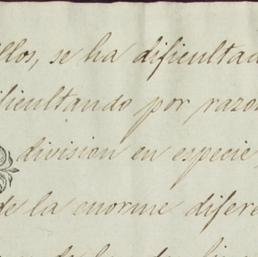 llos, se ha dificultad
ificultando por razo
division en especie
de la enorme difere